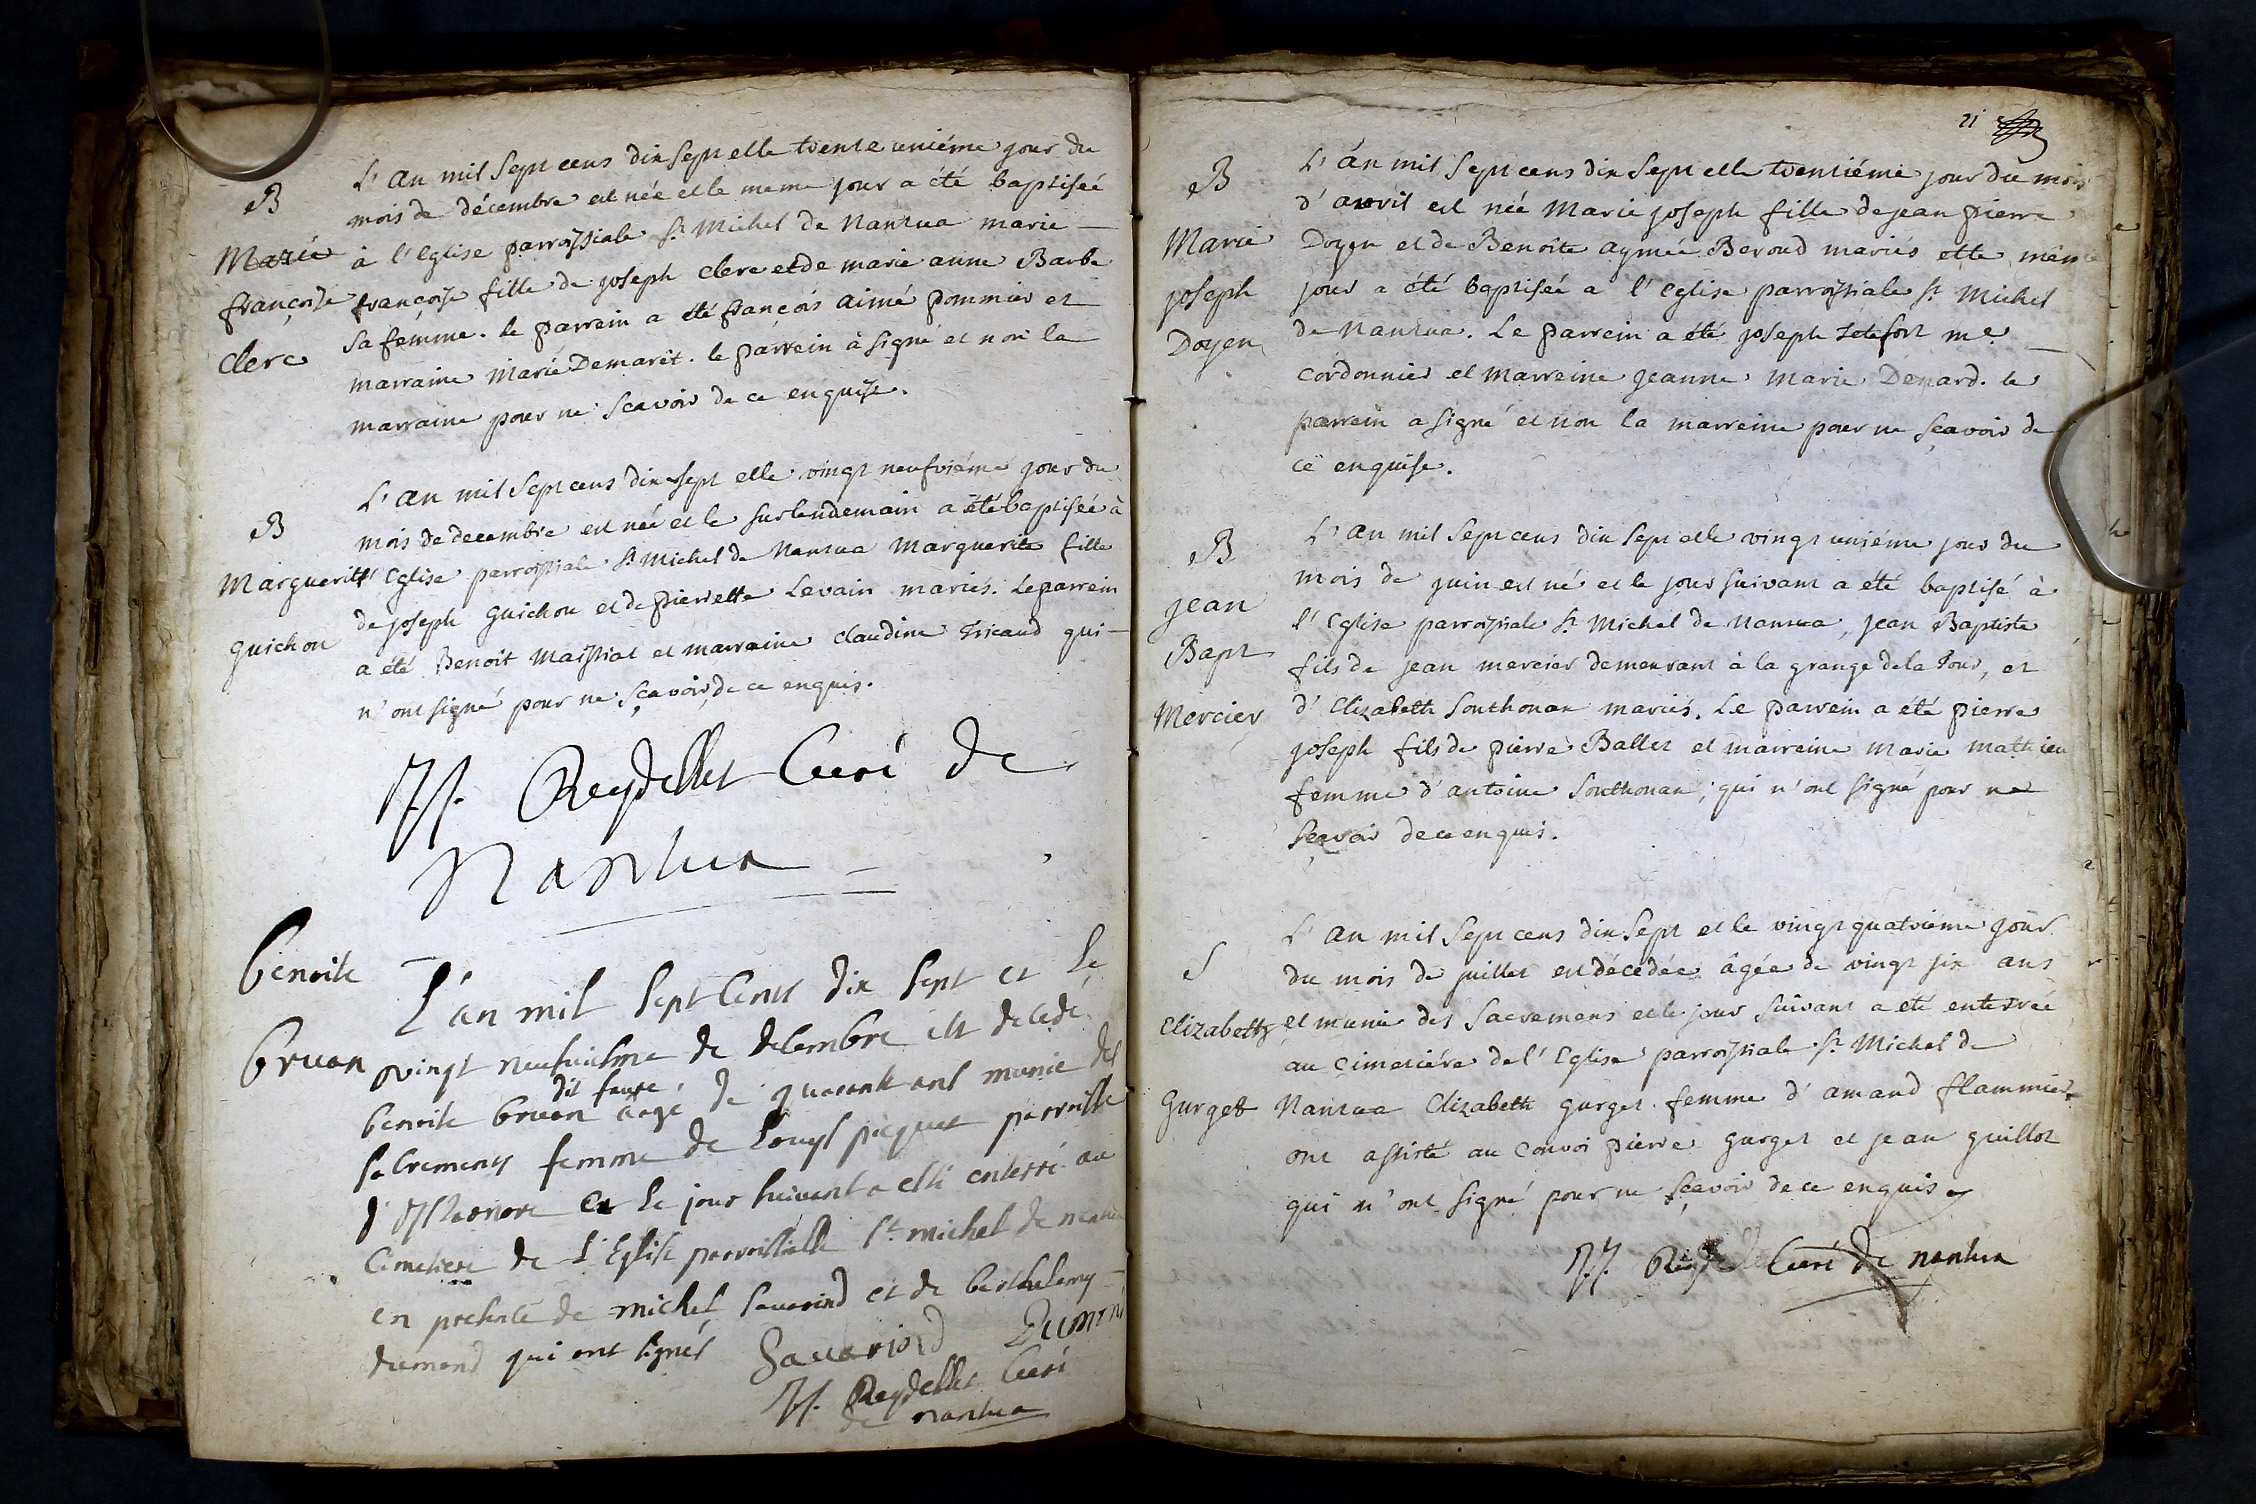 B
Marie
françoise
Clerc
L'an mil Sept cens dix Sept et le trente uniéme jour du
mois de décembre est née et le meme jour a été baptiseé
à l'Eglise parroissiale St Michel de Nantua marie
françoise fille de joseph Clerc et de marie anne Barbe
sa femme. le parrein a été françois aimé pommier et
marraine Marie Demarit. le parrein à signé et non la
marraine pour ne Scavoir de ce enquise.
B
Marguerite
guichon
L'an mil Sept cens dix sept et le vingt neufviéme jour du
mois de decembre est née et le surlendemain a été baptiseé à
l'Eglise parroissiale St Michel de Nantua Marguerite fille
de joseph guichon et de pierrette Levain mariés. Le parrein
a été Benoit Maissiat et marraine Claudine Tricaud qui
n'ont signé pour ne sçavoir de ce enquis.
JJ. Reydellet Curé de
Nantua
benoite
bruon
L'an mil sept cents dix sept et le
vingt neufuiesme de decembre est decedé
benoite bruon dit faure aagé de quarante ans munie des
sacrements femme de Louys piquet parroisse
d'Isleonore et le jour suivant a esté enterré au
Cimetiere de L'Eglise parroissialle St michel de nantua
en presence de michel sauarind et de barthelemy
dumond qui ont signés Sauariond Dumond
JJ. Reydellet Curé
de nantua
21
B
Marie
joseph
Doyen
L'an mil Sept cens dix Sept et le trentiéme jour du mois
d'avril est née Marie joseph fille de jean pierre
Doyen et de Benoite aymée Beroud mariés et le même
jour a été baptiseé a l'Eglise parroissiale St Michel
de Nantua. Le parrein a été joseph Tetefort me
cordonnier et Marreine Jeanne Marie Denard. le
parrein a signé et non la marreine pour ne sçavoir de
ce enquise.
B
jean
Bapt
Mercier
L'an mil Sept cens dix Sept et le vingt uniéme jour du
mois de juin est né et le jour suivant a été baptisé à
l'Eglise parroissiale St Michel de Nantua, jean Baptiste
fils de jean mercier demeurant à la grange de la Tour, et
d'Elizabeth Southonax mariés. Le parrein a été pierre
joseph fils de pierre Ballet et marreine Marie Mathieu
femme d'antoine Southonax, qui n'ont signé pour ne
Sçavoir de ce enquis.
S
Elizabeth
Gurget
L'an mil Sept cens dix Sept et le vingt quatrieme jour
du mois de juillet est décédée âgée de vingt six ans
et munie des Sacremens et le jour suivant a été enterrée
au Cimetiére de l'Eglise parroissiale St Michel de
Nantua Elizabeth gurget femme d'amand flammier
ont assisté au Convoi pierre gurget et jean guillot
qui n'ont signé pour ne sçavoir de ce enquis
JJ. Reydellet Curé de nantua